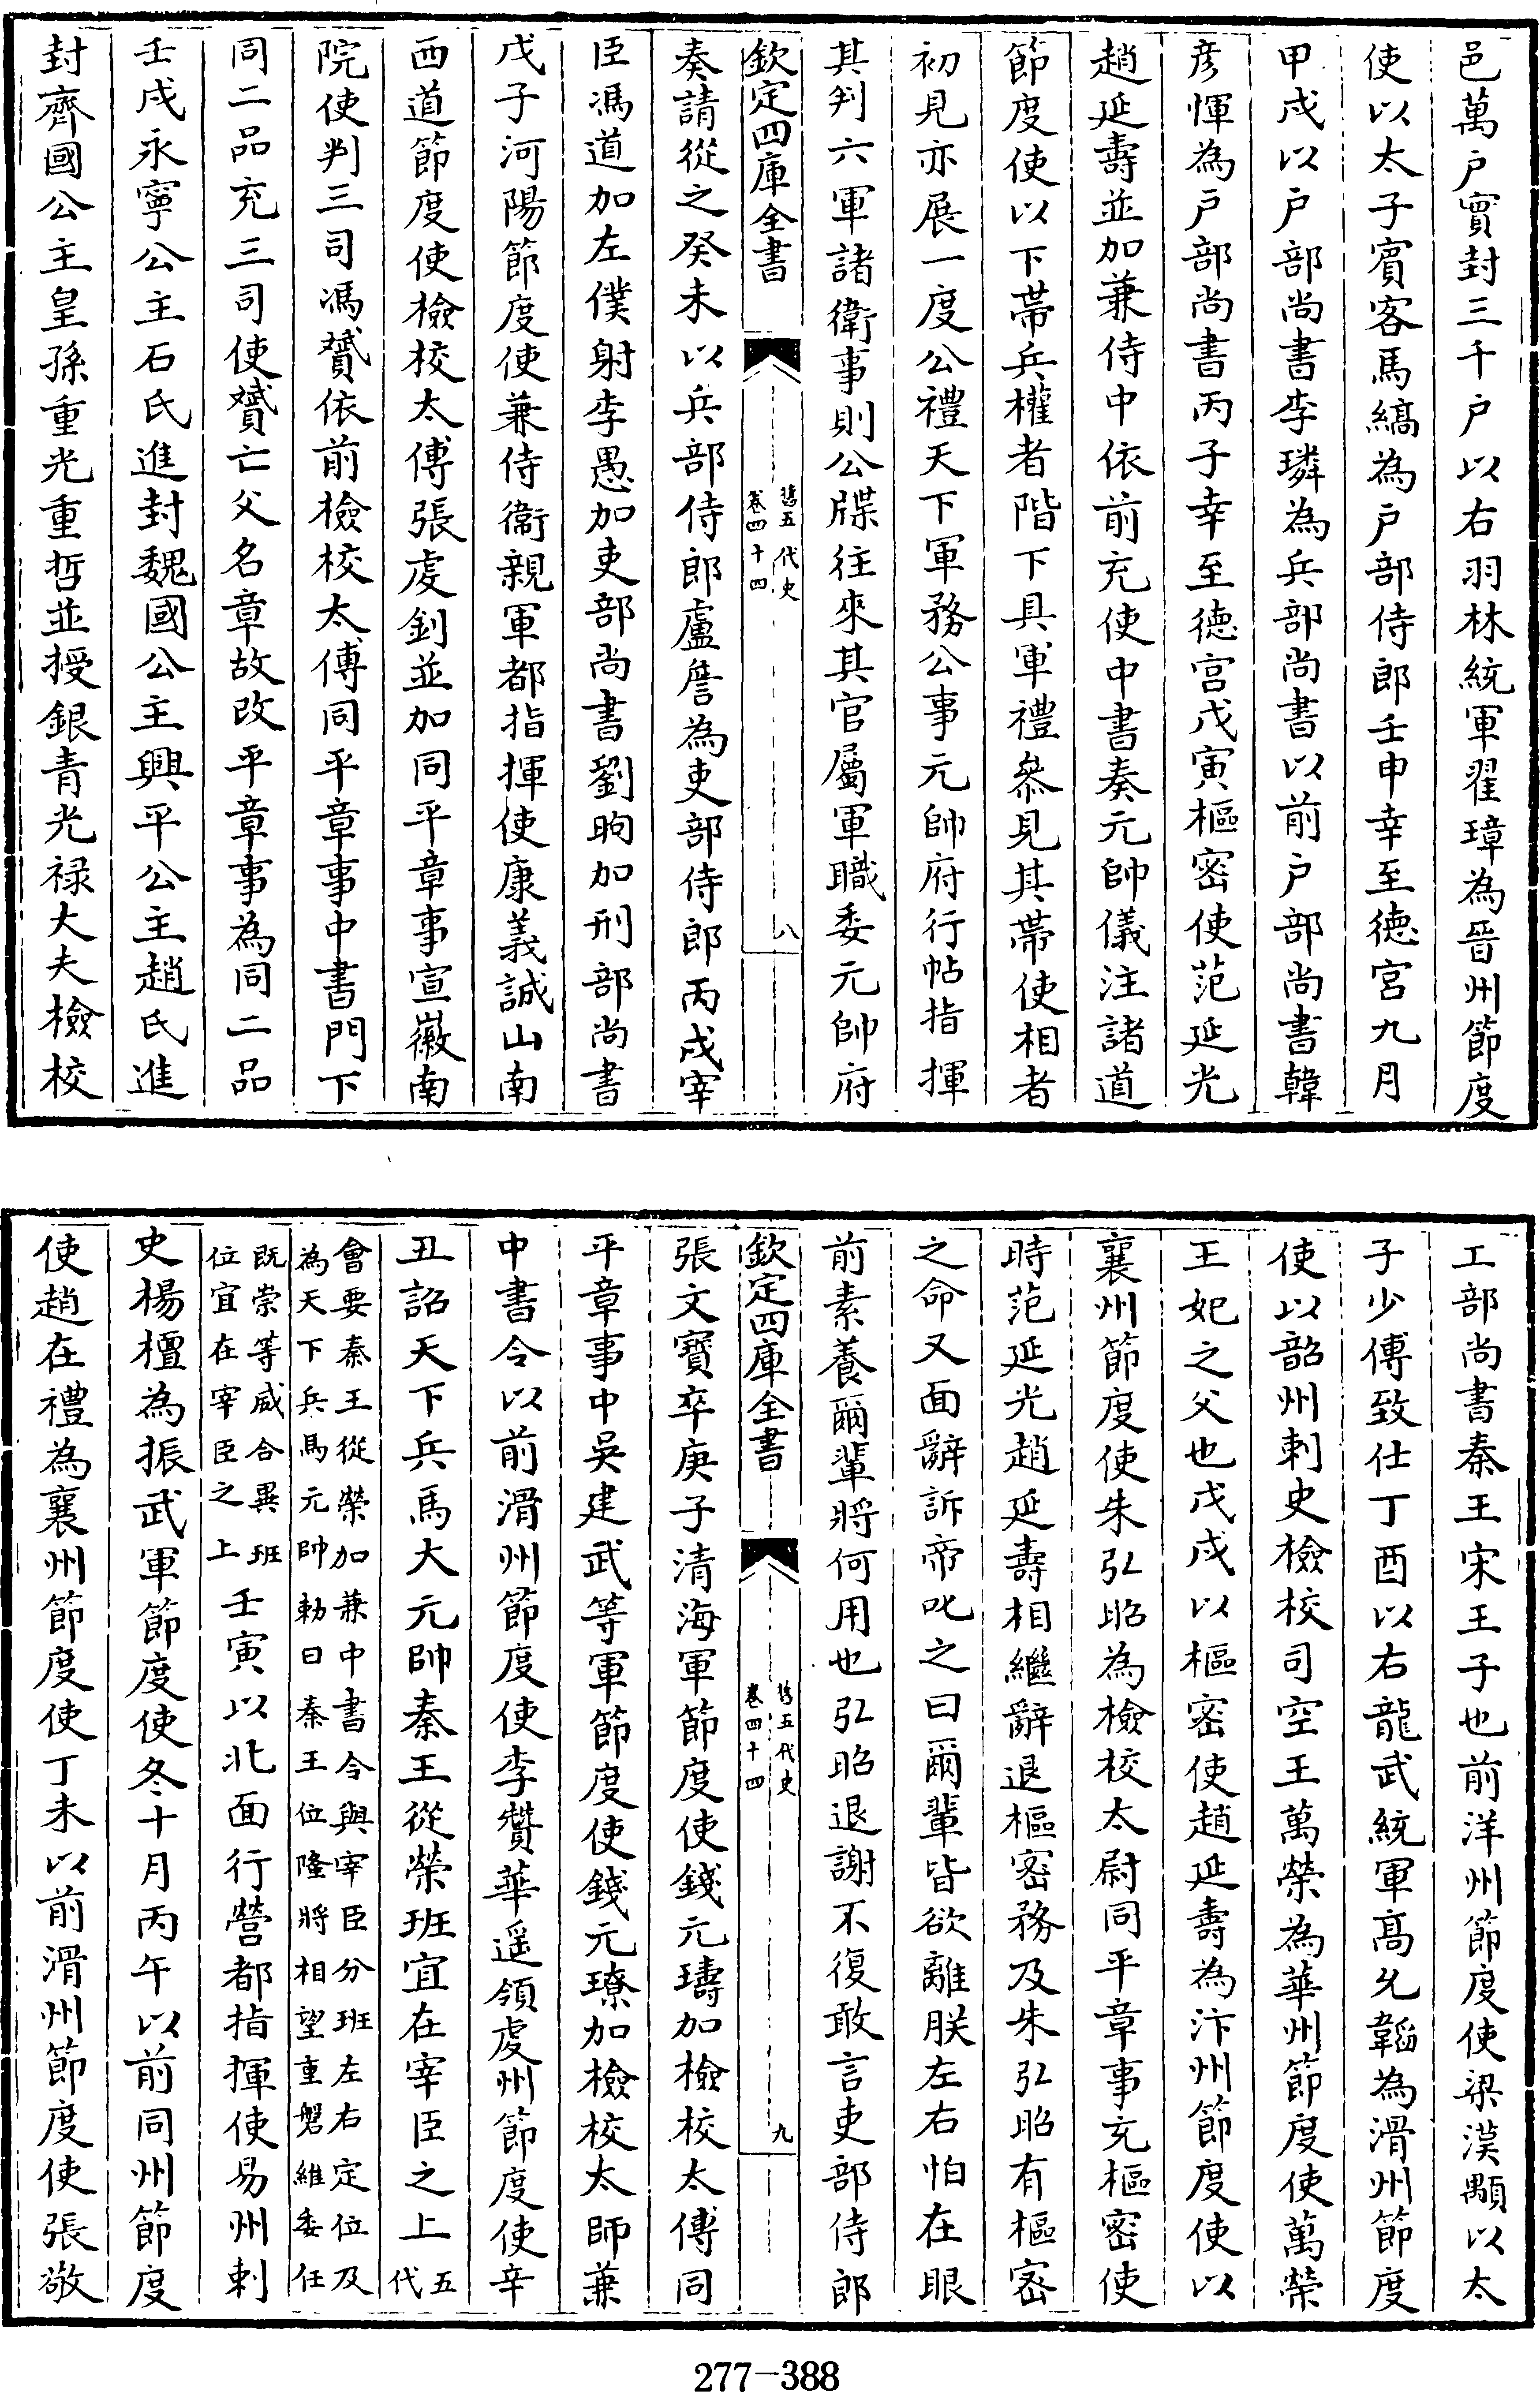 邑萬户實封三千户以右羽林統軍翟璋為晉州節度
使以太子賓客馬縞為户部侍郎壬申幸至德宮九月
甲戌以户部尚書李璘為兵部尚書以前户部尚書韓
彦惲為户部尚書丙子幸至德宫戊寅樞密使范延光
趙延壽並加兼侍中依前充使中書奏元帥儀注諸道
節度使以下帶兵權者階下具軍禮參見其帶使相者
初見亦展一度公禮天下軍務公事元帥府行帖指揮
其判六軍諸衛事則公牒往來其官屬軍職委元帥府
欽定四庫全書
舊五代史
卷四十四
八
奏請從之癸未以兵部侍郎盧詹為吏部侍郎丙戌宰
臣馮道加左僕射李愚加吏部尚書劉昫加刑部尚書
戊子河陽節度使兼侍衛親軍都指揮使康義誠山南
西道節度使檢校太傅張虔釗並加同平章事宣徽南
院使判三司馮贇依前檢校太傅同平章事中書門下
同二品充三司使贇亡父名章故改平章事為同二品
壬戌永寧公主石氏進封魏國公主興平公主趙氏進
封齊國公主皇孫重光重哲並授銀青光禄大夫檢校
工部尚書秦王宋王子也前洋州節度使梁漢顒以太
子少傅致仕丁酉以右龍武統軍高允韜為滑州節度
使以韶州刺史檢校司空王萬榮為華州節度使萬榮
王妃之父也戊戌以樞密使趙延壽為汴州節度使以
襄州節度使朱弘昭為檢校太尉同平章事充樞密使
時范延光趙延壽相繼辭退樞密務及朱弘昭有樞密
之命又面辭訴帝叱之曰爾輩皆欲離朕左右怕在眼
前素養爾輩將何用也弘昭退謝不復敢言吏部侍郎
欽定四庫全書
舊五代史
卷四十四
九
張文寶卒庚子清海軍節度使錢元璹加檢校太傅同
平章事中吳建武等軍節度使錢元璙加檢校太師兼
中書令以前滑州節度使李贊華遥領虔州節度使辛
丑詔天下兵馬大元帥秦王從榮班宜在宰臣之上五代
會要秦王從榮加兼中書令與宰臣分班左右定位及
為天下兵馬元帥勅曰秦王位隆將相望重磐維委任
既崇等威合異班
位宜在宰臣之上壬寅以北面行營都指揮使易州刺
史楊檀為振武軍節度使冬十月丙午以前同州節度
使趙在禮為襄州節度使丁未以前滑州節度使張敬
277-388